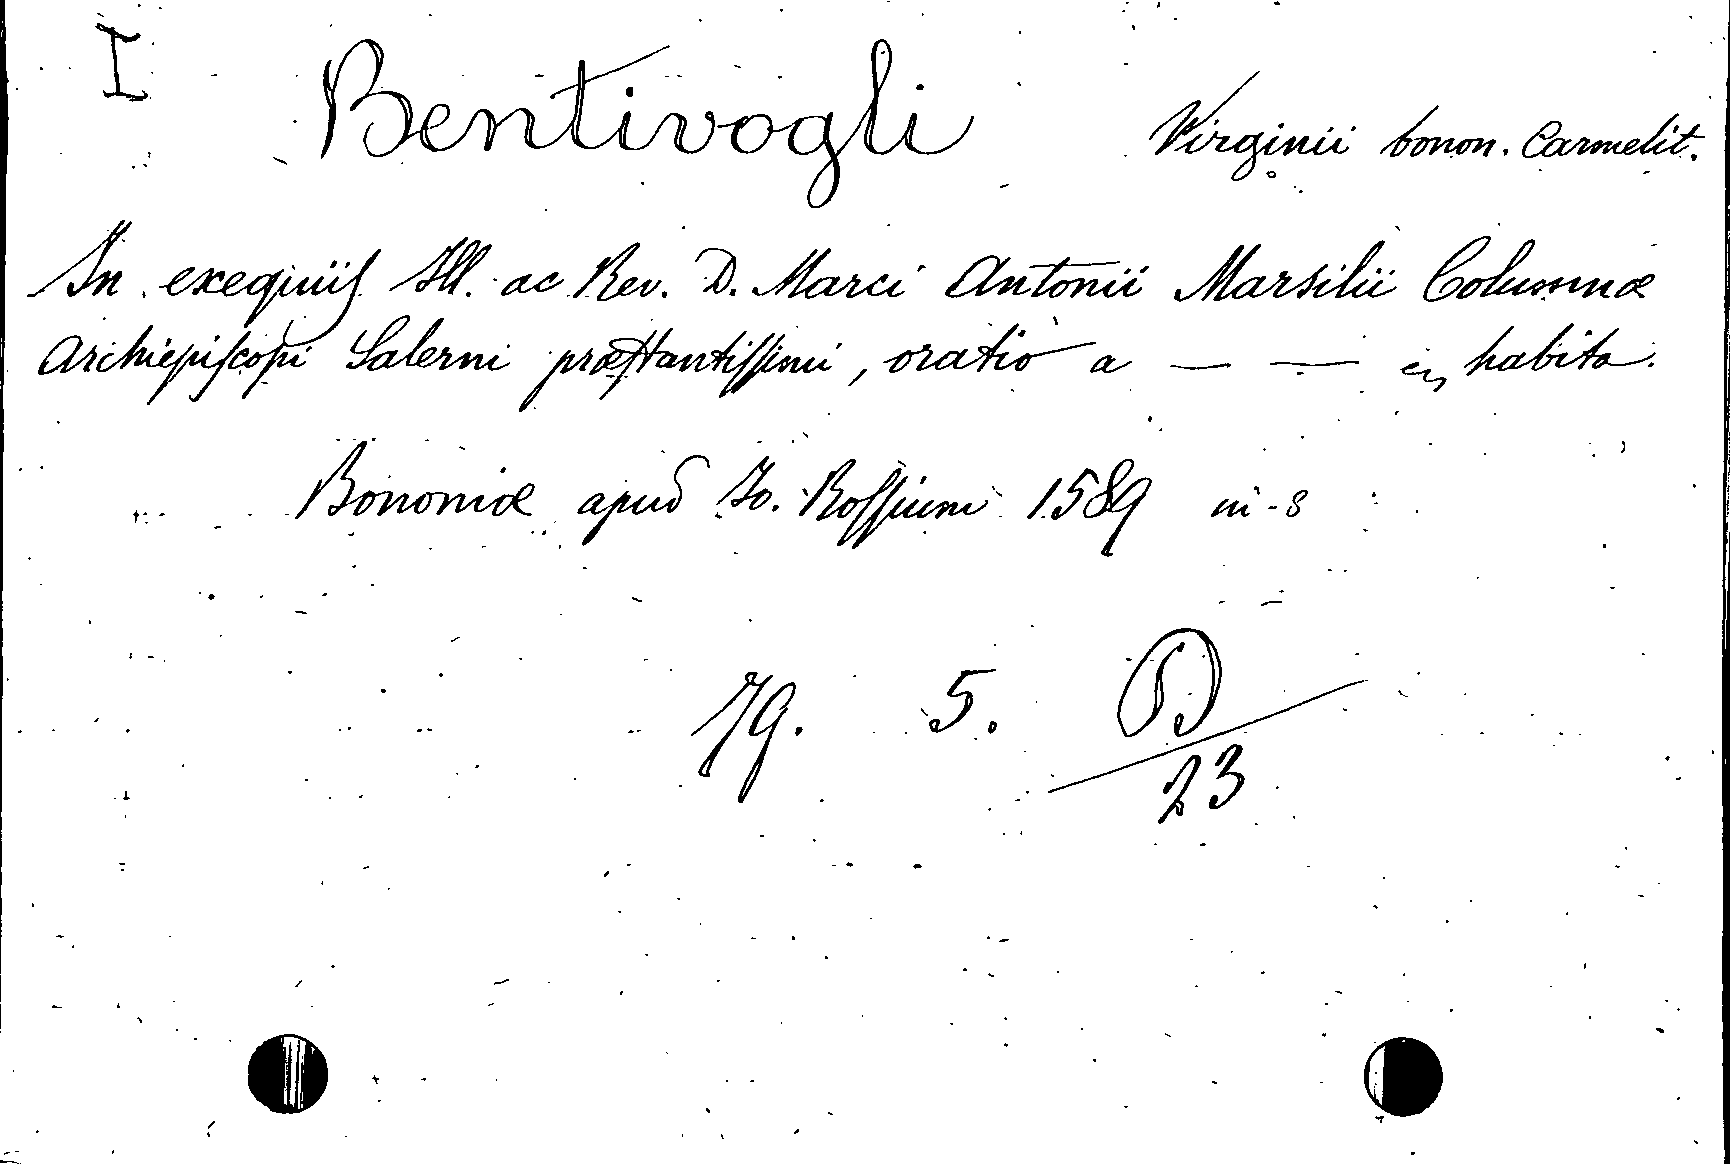 I
Bentivogli Virginii bonon. Carmelit.
In exequiis Ill. ac Rev. D. Marci Antonii Marsilii Columnæ
Archiepiscopi Salerni præstantissimi, oratio a — — habita.
Bononiæ apud Jo. Rossium 1589 in-8
79. 5. D
23